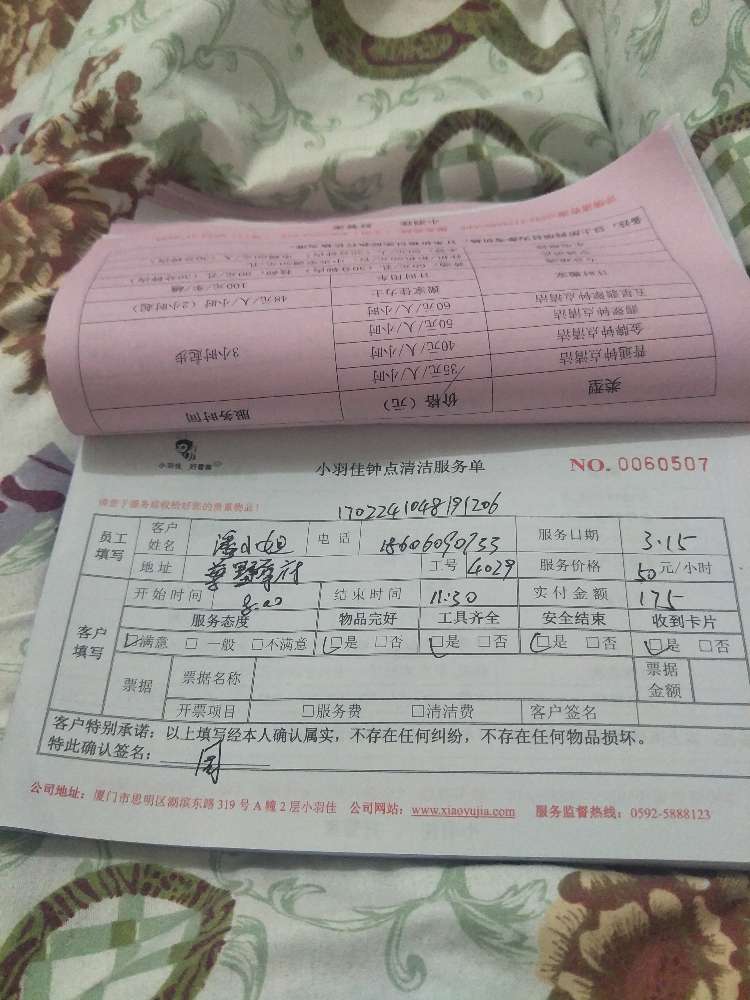 类型
价格（元）
服务时间
普通钟点清洁
35元/人/小时
3小时起步
金牌钟点清洁
40元/人/小时
50元/人/小时
五星翡翠钟点清洁
60元/人/小时
48元/人/小时（2小时起）
100元/车/趟
小羽佳 好管家
小羽佳钟点清洁服务单
NO. 0060507
1702241048191206
员工填写
客户姓名
潘小姐
电话
服务日期
3.15
地址
工号
4029
服务价格
50元/小时
客户填写
开始时间
8:00
结束时间
11:30
实付金额
175
服务态度
物品完好
工具齐全
安全结束
收到卡片
☑满意 □一般 □不满意
☑是 □否
☑是 □否
☑是 □否
☑是 □否
票据
票据名称
票据金额
开票项目
□服务费
□清洁费
客户签名
客户特别承诺：以上填写经本人确认属实，不存在任何纠纷，不存在任何物品损坏。
特此确认签名：周
公司地址：厦门市思明区湖滨东路319号A幢2层小羽佳 公司网站：www.xiaoyujia.com 服务监督热线：0592-5888123